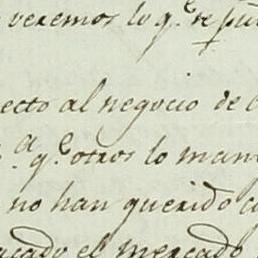 veremos lo q.e se pu
ecto al negocio de
a q.e otros lo man
no han querido c
acado el mercado